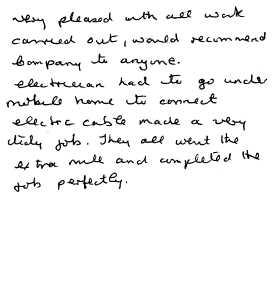 very pleased with all work
carried out, would recommend
Company to anyone.
electrician had to go under
mobile home to connect
electric cable made a very
tidy job. They all went the
extra mile and completed the
job perfectly.